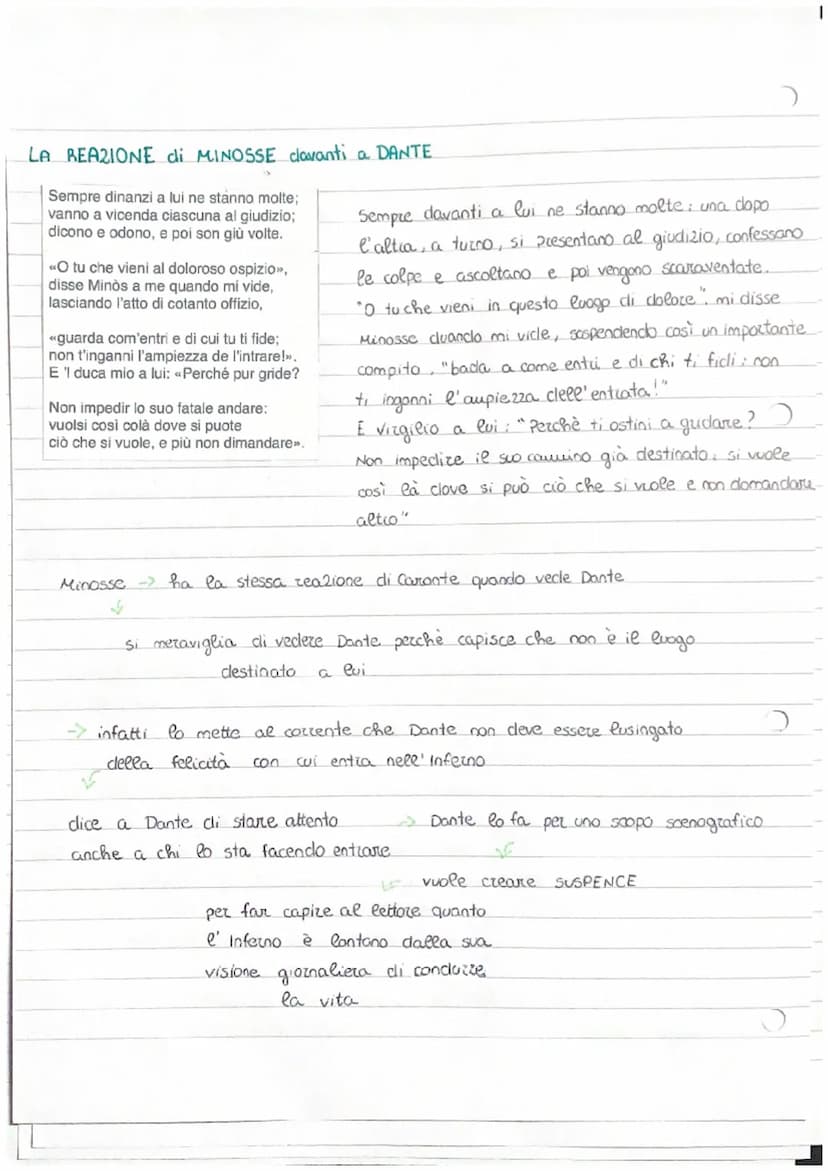 LA REAZIONE di MINOSSE davanti a DANTE
Sempre dinanzi a lui ne stanno molte;
vanno a vicenda ciascuna al giudizio;
dicono e odono, e poi son giù volte.
«O tu che vieni al doloroso ospizio»,
disse Minòs a me quando mi vide,
lasciando l'atto di cotanto offizio,
«guarda com'entri e di cui tu ti fide;
non t'inganni l'ampiezza de l'intrare!».
E 'l duca mio a lui: «Perché pur gride?
Non impedir lo suo fatale andare:
vuolsi così colà dove si puote
ciò che si vuole, e più non dimandare».
Sempre davanti a lui ne stanno molte: una dopo
l'altra, a turno, si presentano al giudizio, confessano
le colpe e ascoltano e poi vengono scaraventate.
"O tu che vieni in questo luogo di dolore", mi disse
Minosse quando mi vide, sospendendo così un importante
compito, "bada a come entri e di chi ti fidi: non
ti inganni l'ampiezza dell'entrata!"
E Virgilio a lui: "Perchè ti ostini a gridare?
Non impedire il suo cammino già destinato: si vuole
così là dove si può ciò che si vuole e non domandare
altro"
Minosse -> ha la stessa reazione di Caronte quando vede Dante
si meraviglia di vedere Dante perchè capisce che non è il luogo
destinato a lui
-> infatti lo mette al corrente che Dante non deve essere lusingato
della felicità con cui entra nell'Inferno
dice a Dante di stare attento -> Dante lo fa per uno scopo scenografico
anche a chi lo sta facendo entrare
vuole creare SUSPENCE
per far capire al lettore quanto
l'Inferno è lontano dalla sua
visione giornaliera di condurre
la vita